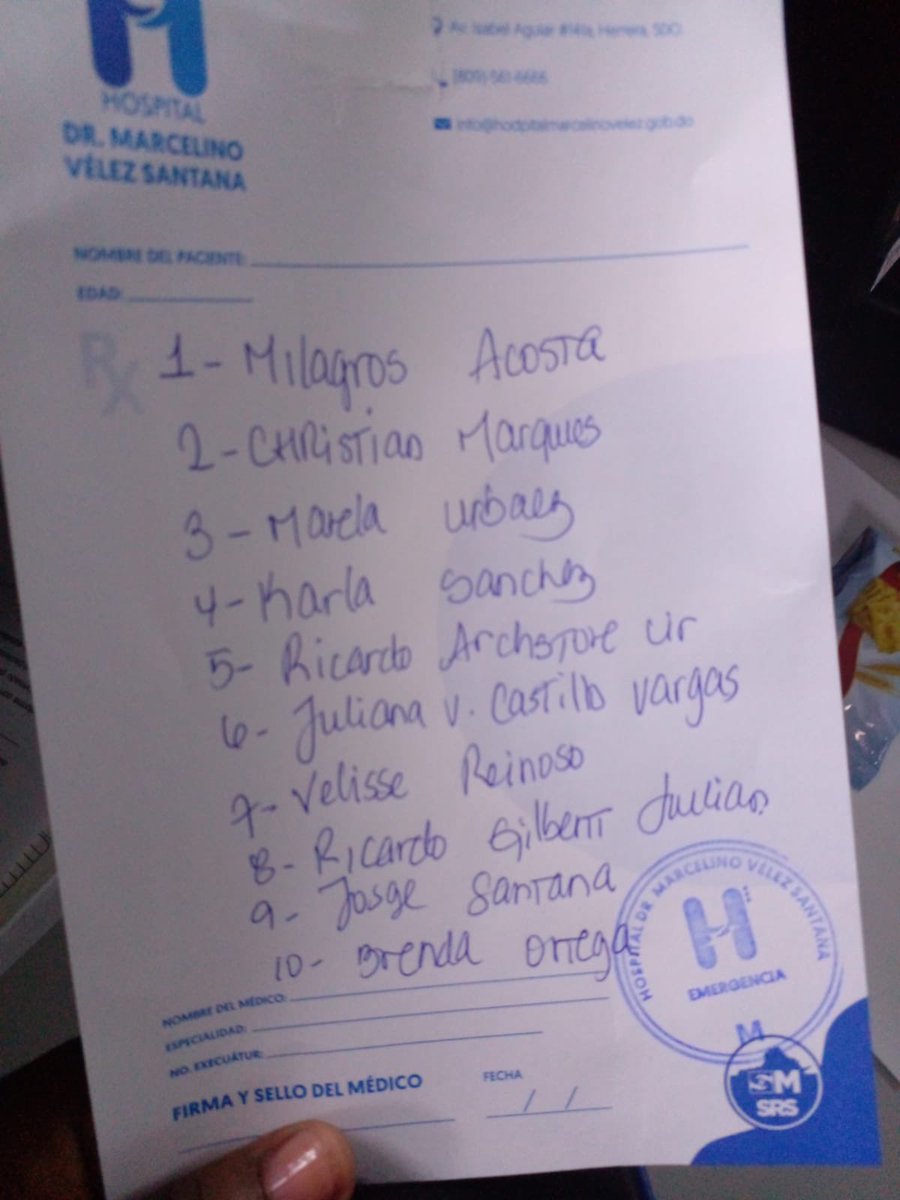 HOSPITAL
DR. MARCELINO
VÉLEZ SANTANA
Av. Isabel Aguiar #141a, Herrera, SDO.
(809) 561-6666
info@hodpitalmarcelinovelez.gob.do
NOMBRE DEL PACIENTE:
EDAD:
Rx
1- Milagros Acosta
2- CHRISTian Marques
3- Marela urbaez
4- Karla Sanchez
5- Ricardo Archstore Lir
6- Juliana V. Castillo Vargas
7- Velisse Reinoso
8- Ricardo Gilbert Julian
9- Josge Santana
10- Brenda Ortega
HOSPITAL DR MARCELINO VÉLEZ SANTANA
EMERGENCIA
M
NOMBRE DEL MÉDICO:
ESPECIALIDAD:
NO. EXECUÁTUR:
FIRMA Y SELLO DEL MÉDICO
FECHA
/ /
SM
SRS